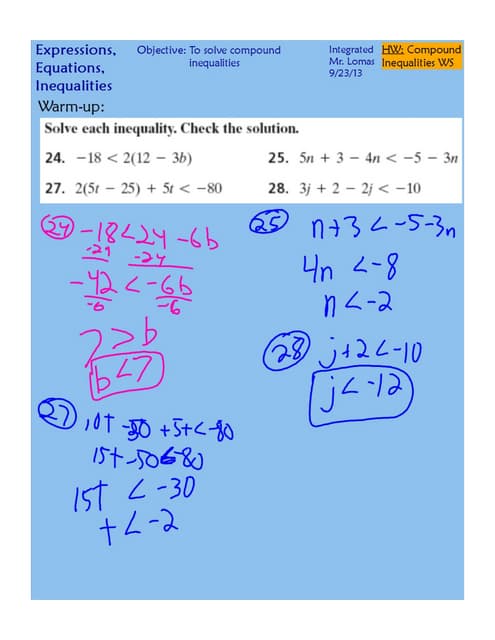 Expressions,
Equations,
Inequalities
Objective: To solve compound
inequalities
Integrated
Mr. Lomas
9/23/13
HW: Compound
Inequalities WS
Warm-up:
Solve each inequality. Check the solution.
24. −18 < 2(12 − 3b)
25. 5n + 3 − 4n < −5 − 3n
27. 2(5t − 25) + 5t < −80
28. 3j + 2 − 2j < −10
24 -18<24 -6b
-24 -24
-42 < -6b
-6 -6
7 > b
b<7
25 n+3 < -5-3n
4n < -8
n < -2
28 j+2<-10
j< -12
27 10t -50 +5t<-80
15t -50<-80
15t < -30
t < -2